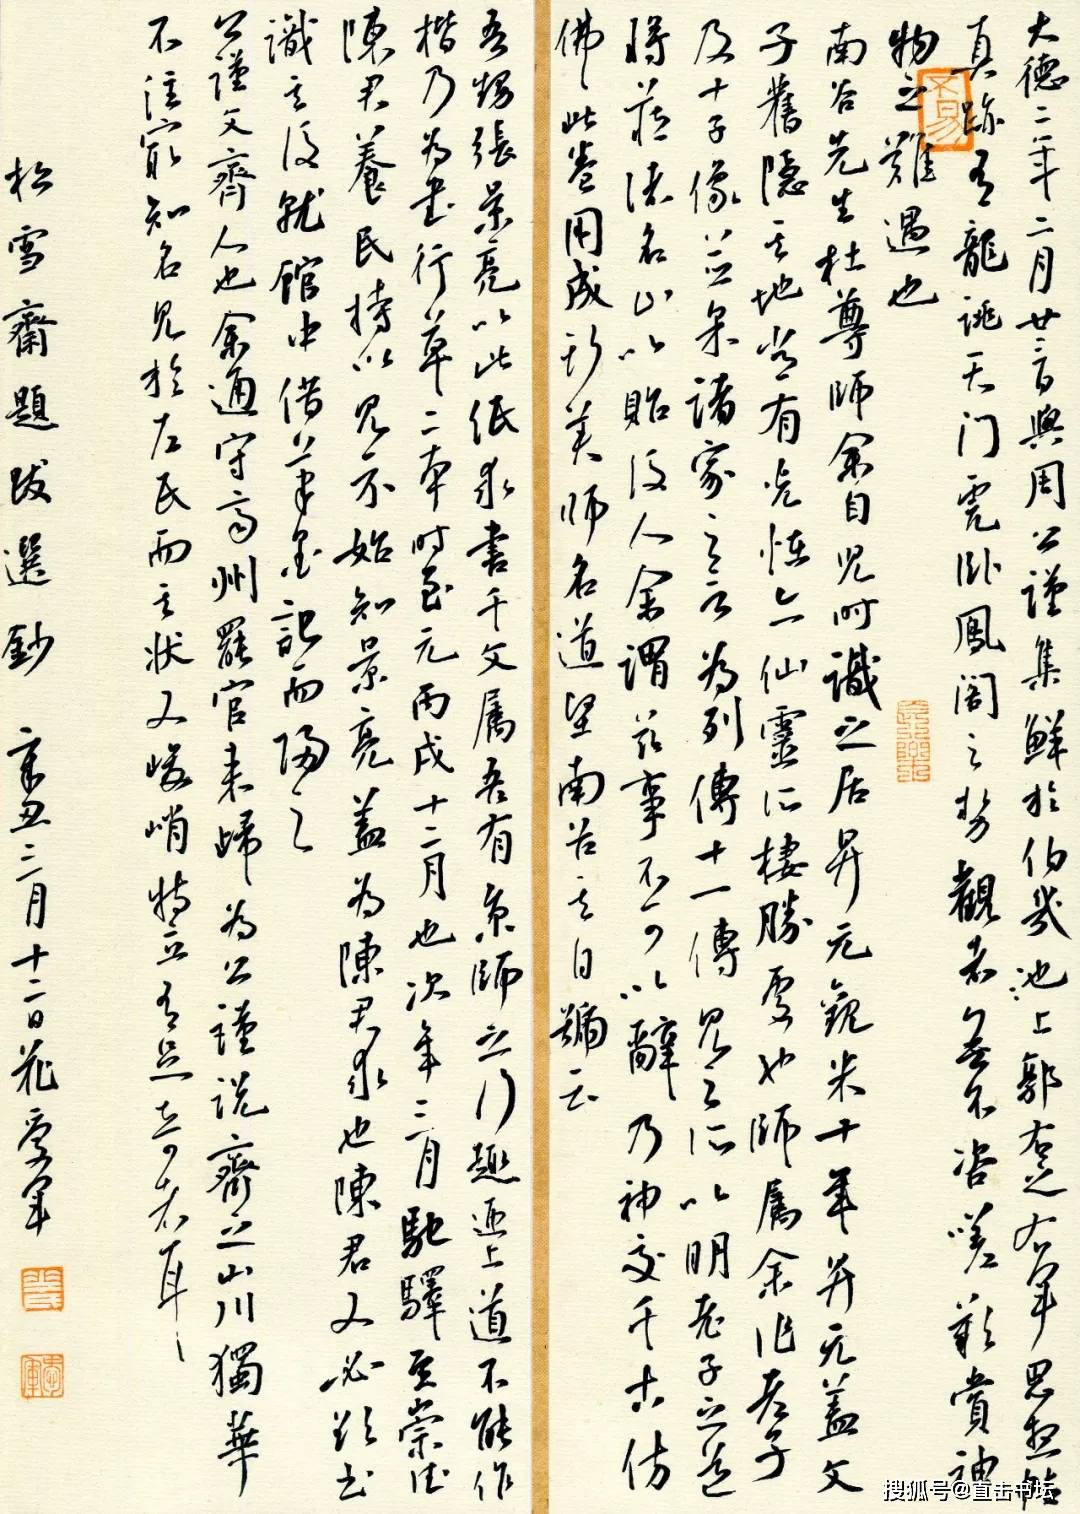 大德二年二月廿三日與周公謹集鮮於伯幾池上郭右之出右軍思想帖
真跡有龍跳天门虎卧鳳阁之势觀者無不咨嗟歎賞神
物之難遇也
南谷先生杜尊師余自兒时識之居昇元觀米十年昇元蓋文
子舊隱之地尝有光怪亦仙靈所棲勝處也師属余作老子
及十子像并采諸家之言为列傳十一傳見之所以明老子之道
將藏诸名山以貽後人余謂兹事不可以辭乃神交千古仿
佛此卷用成斯美師名道堅南谷其自號云
吾甥張景亮以此纸求書千文属吾有京師之行趣迫上道不能作
楷乃为书行草二本时至元丙戌十二月也次年三月馳驛至崇德
陳君養民持以見示始知景亮蓋为陳君求也陳君又必欲书
識其後就館中借筆墨記而歸之
公謹父齊人也余通守齊州罷官来歸为公謹说齊之山川獨華
不注最知名見於左氏而其状又峻峭特立有足奇者耳
松雪齋題跋選鈔 辛丑三月十二日花愛軍
不易
搜狐号@直击书坛